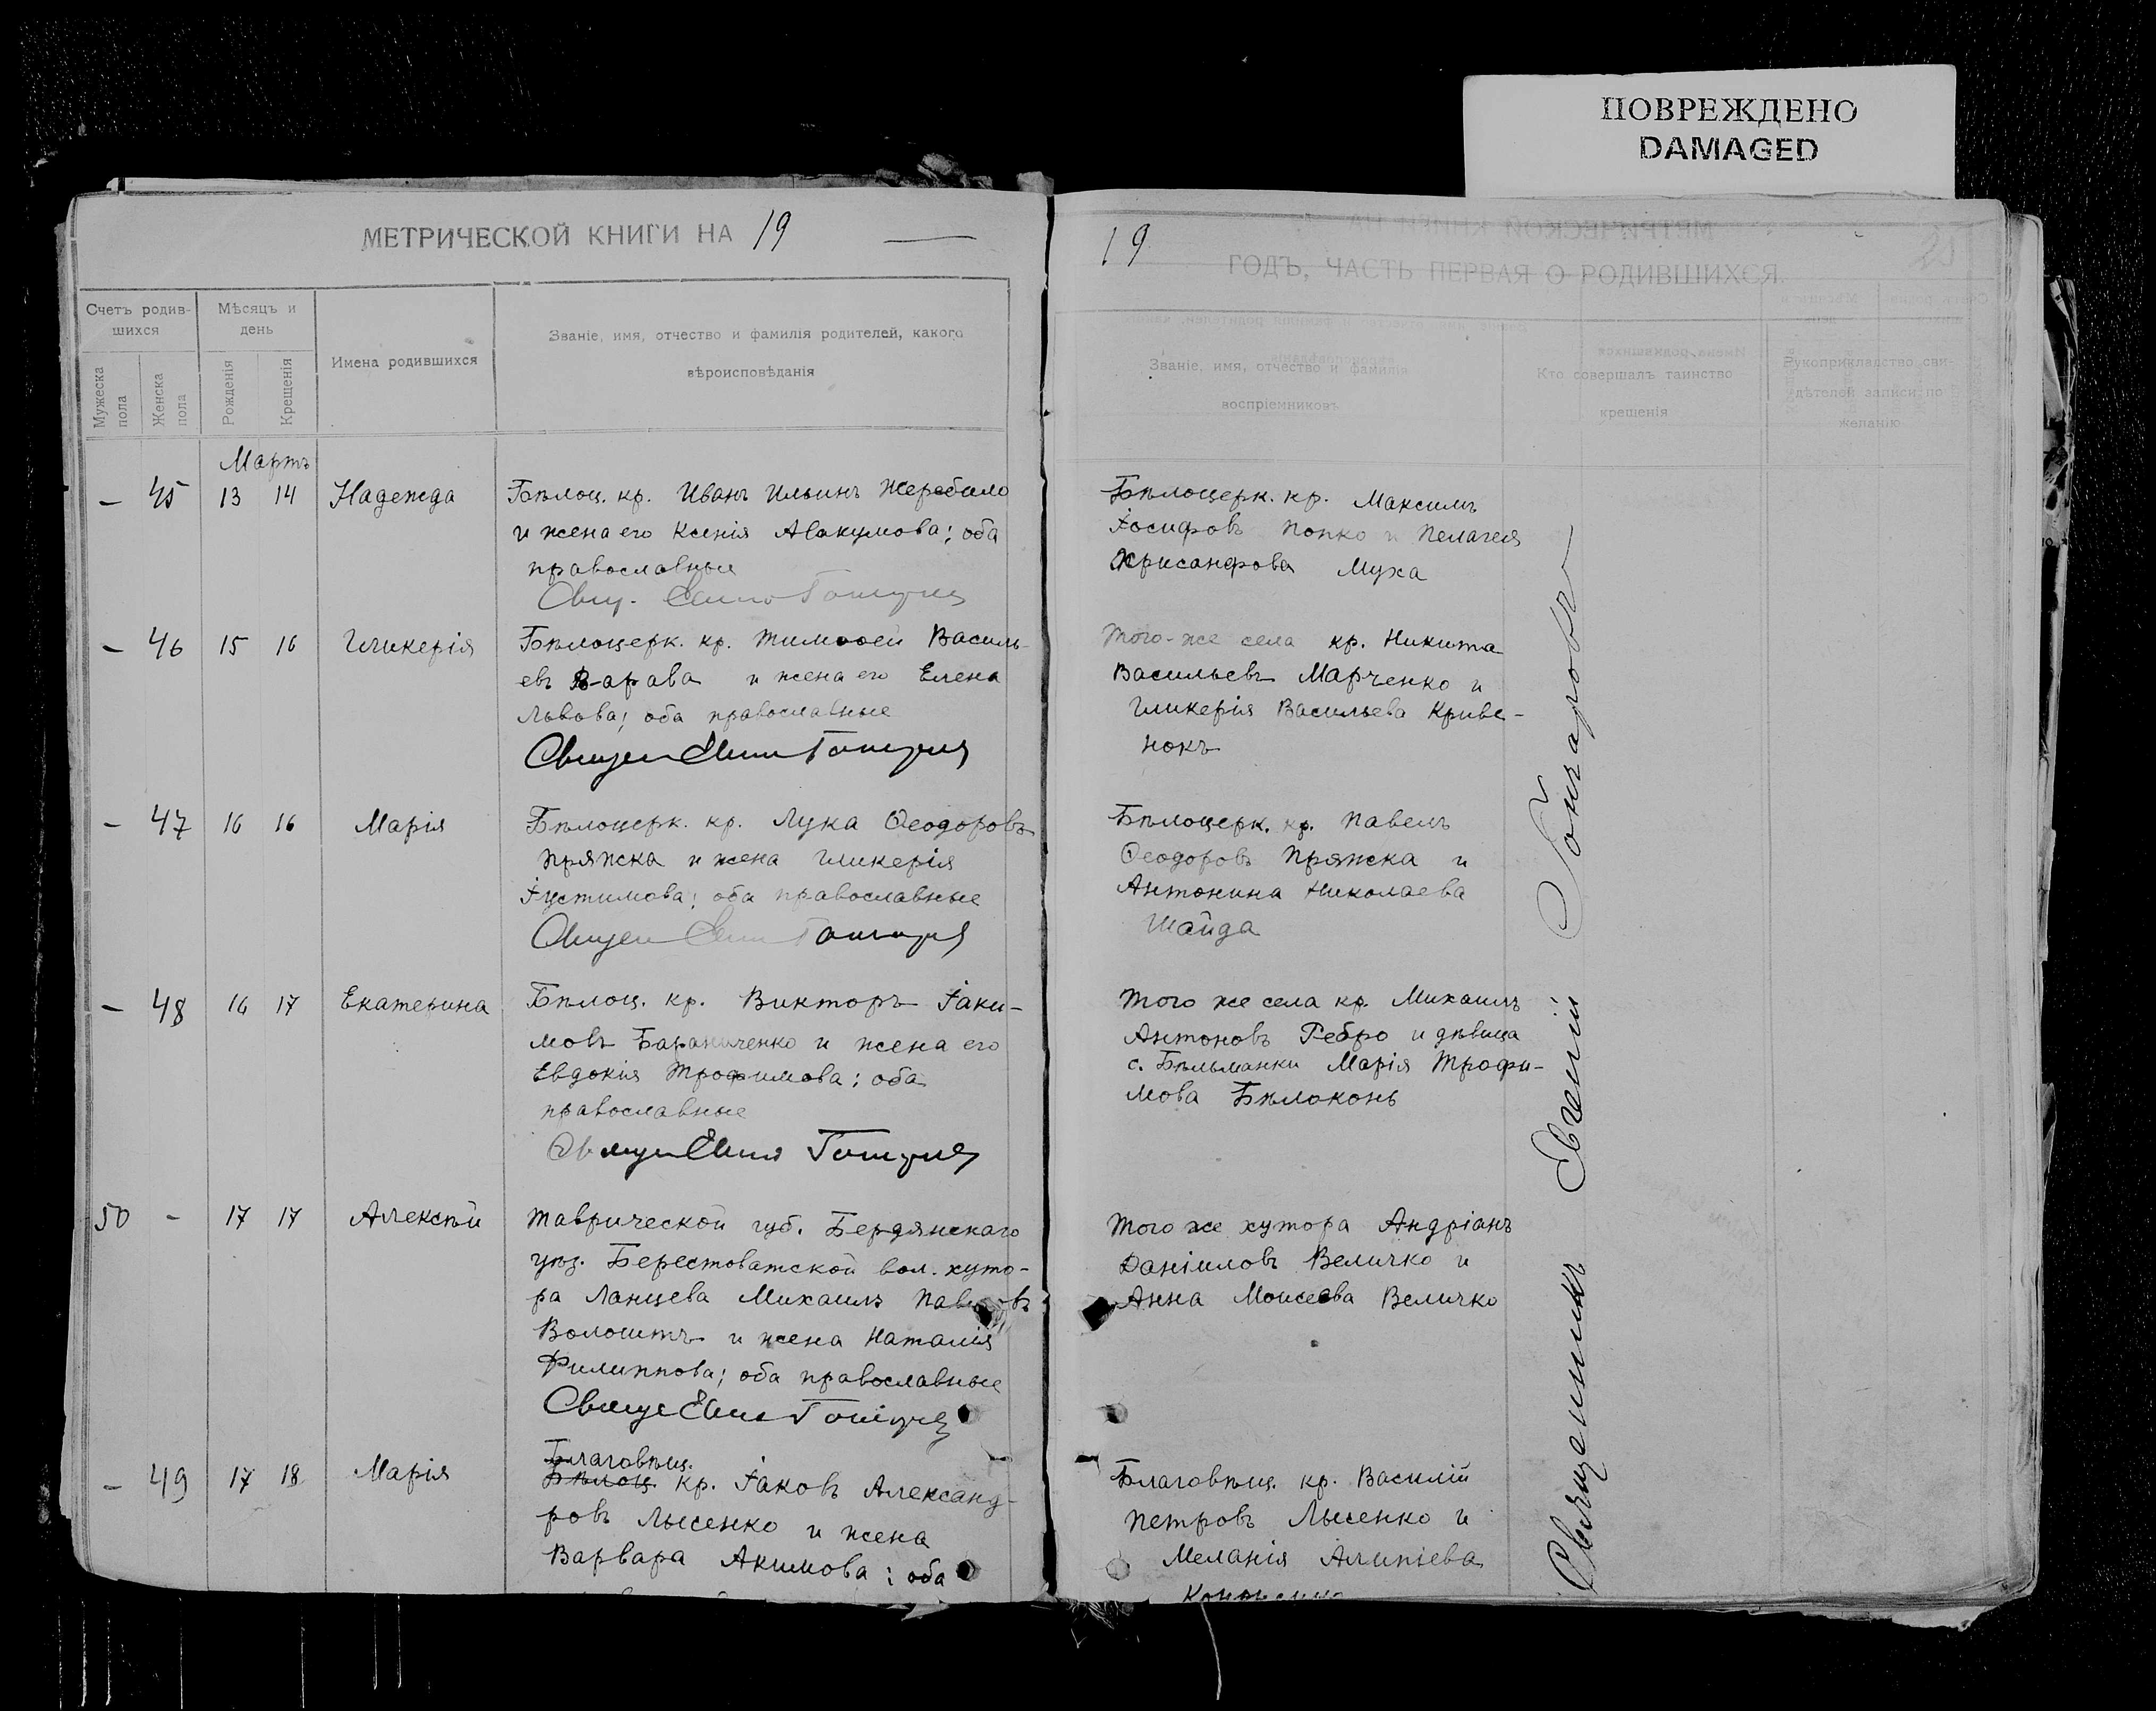 ПОВРЕЖДЕНО
DAMAGED
МЕТРИЧЕСКОЙ КНИГИ НА 19
Счетъ родив-
шихся
Мѣсяцъ и
день
Имена родившихся
Званіе, имя, отчество и фамилія родителей, какого
вѣроисповѣданія
Мужеска
пола
Женска
пола
Рожденія
Крещенія
Мартъ
— 45 13 14 Надежда
Бѣлоц. кр. Иванъ Ильинъ Жеребило
и жена его Ксенія Авакумова; оба
православные
— 46 15 16 Гликерія
Бѣлоцерк. кр. Тимоѳей Василь-
евъ Варава и жена его Елена
Львова; оба православные
— 47 16 16 Марія
Бѣлоцерк. кр. Лука Ѳеодоровъ
Пряжка и жена Гликерія
Іустимова; оба православные
— 48 16 17 Екатерина
Бѣлоц. кр. Викторъ Іаки-
мовъ Бараниченко и жена его
Евдокія Трофимова; оба
православные
50 - 17 17 Алексѣй
Таврической губ. Бердянскаго
уѣз. Берестоватской вол. хуто-
ра Ланцева Михаилъ Павловъ
Волошинъ и жена Наталія
Филиппова; оба православные
— 49 17 18 Марія
Благовѣщ.
Бѣлоц. кр. Іаковъ Александ-
ровъ Лысенко и жена
Варвара Акимова; оба
19
ГОДЪ, ЧАСТЬ ПЕРВАЯ О РОДИВШИХСЯ.
Званіе, имя, отчество и фамилія
воспріемниковъ
Кто совершалъ таинство
крещенія
Рукоприкладство сви-
дѣтелей записи по
желанію
Бѣлоцерк. кр. Максимъ
Іосифовъ Попко и Пелагея
Хрисанфова Муха
Того-же села кр. Никита
Васильевъ Марченко и
Гликерія Васильева Криве-
нокъ
Бѣлоцерк. кр. Павелъ
Ѳеодоровъ Пряжка и
Антонина Николаева
Шайда
Того же села кр. Михаилъ
Антоновъ Ребро и дѣвица
с. Бѣльманки Марія Трофи-
мова Бѣлоконь
Того же хутора Андріанъ
Даніиловъ Величко и
Анна Моисеева Величко
Благовѣщ. кр. Василій
Петровъ Лысенко и
Меланія Алипіева
Священникъ Евгеній Гончаровъ